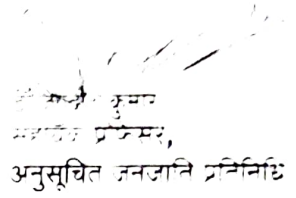 कुमार
सहायक प्रोफेसर,
अनुसूचित जनजाति प्रतिनिधि